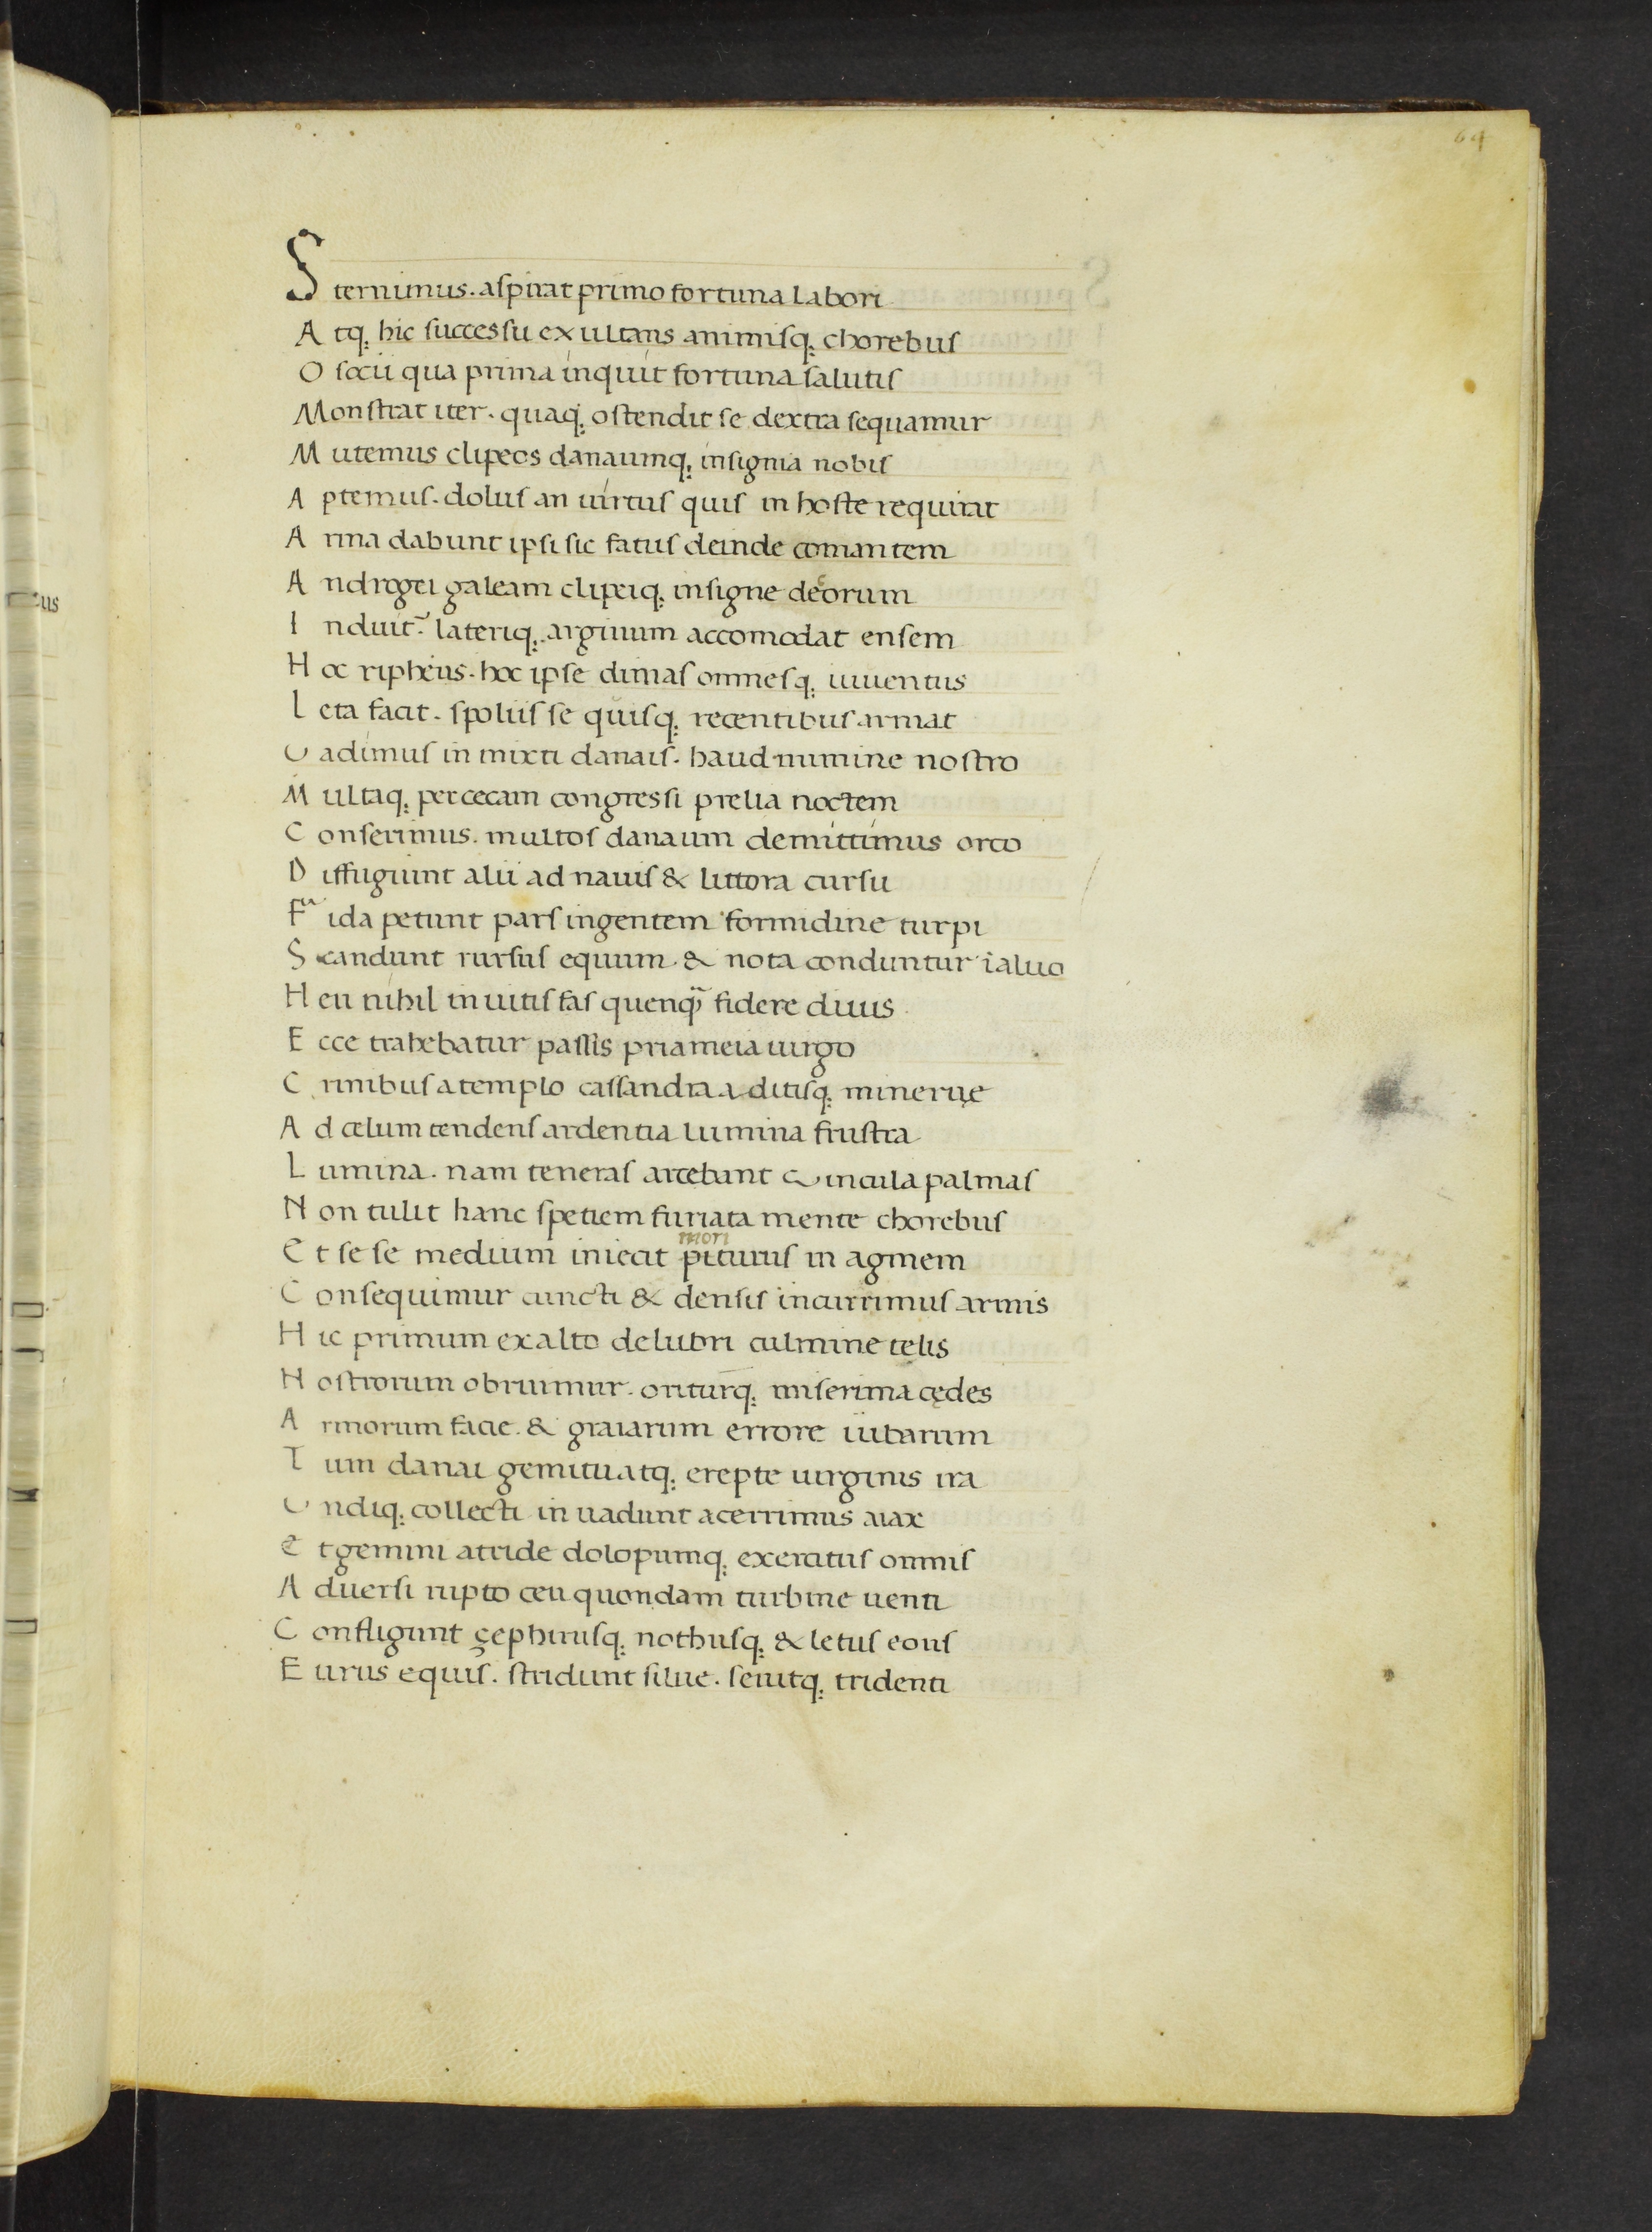 64
Sternimus. aspirat primo fortuna labori
Atq; hic successu exultans animisq; chorebus
O socii qua prima inquit fortuna salutis
Monstrat iter. quaq; ostendit se dextra sequamur
Mutemus clipeos danaumq; insignia nobis
Aptemus. dolus an uirtus quis in hoste requirat
Arma dabunt ipsi sic fatus deinde comantem
Androgei galeam clipeiq; insigne decorum
Induit~ lateriq; argiuum accomodat ensem
Hoc ripheus. hoc ipse dimas omnesq; iuuentus
Leta facit. spoliis se quisq; recentibus armat
Uadimus in mixti danais. haud numine nostro
Multaq; per cecam congressi prelia noctem
Conserimus. multos danaum demittimus orco
Diffugiunt alii ad nauis & littora cursu
Fida petunt pars ingentem formidine turpi
Scandunt rursus equum. & nota conduntur i aluo
Heu nihil inuitis fas quenq̃ fidere diuis
Ecce trahebatur passis priameia uirgo
Crinibus a templo cassandra aditisq; minerue
Ad celum tendens ardentia lumina frustra
Lumina. nam teneras arcebant uincula palmas
Non tulit hanc spetiem furiata mente chorebus
mori
Et se se medium iniecit piturus in agmem
Consequimur cuncti & densis incurrimus armis
Hic primum ex alto delubri culmine telis
Nostrorum obruimur. oriturq; miserima cędes
Armorum facie. & graiarum errore iubarum
Tum danai gemitu atq; erepte uirginis ira
Undiq; collecti in uadunt acerrimus aiax
Et gemini atride dolopumq; exercitus omnis
Aduersi rupto ceu quondam turbine uenti
Confligunt çephirusq; nothusq; & letus eous
Eurus equis. stridunt silue. seuitq; tridenti